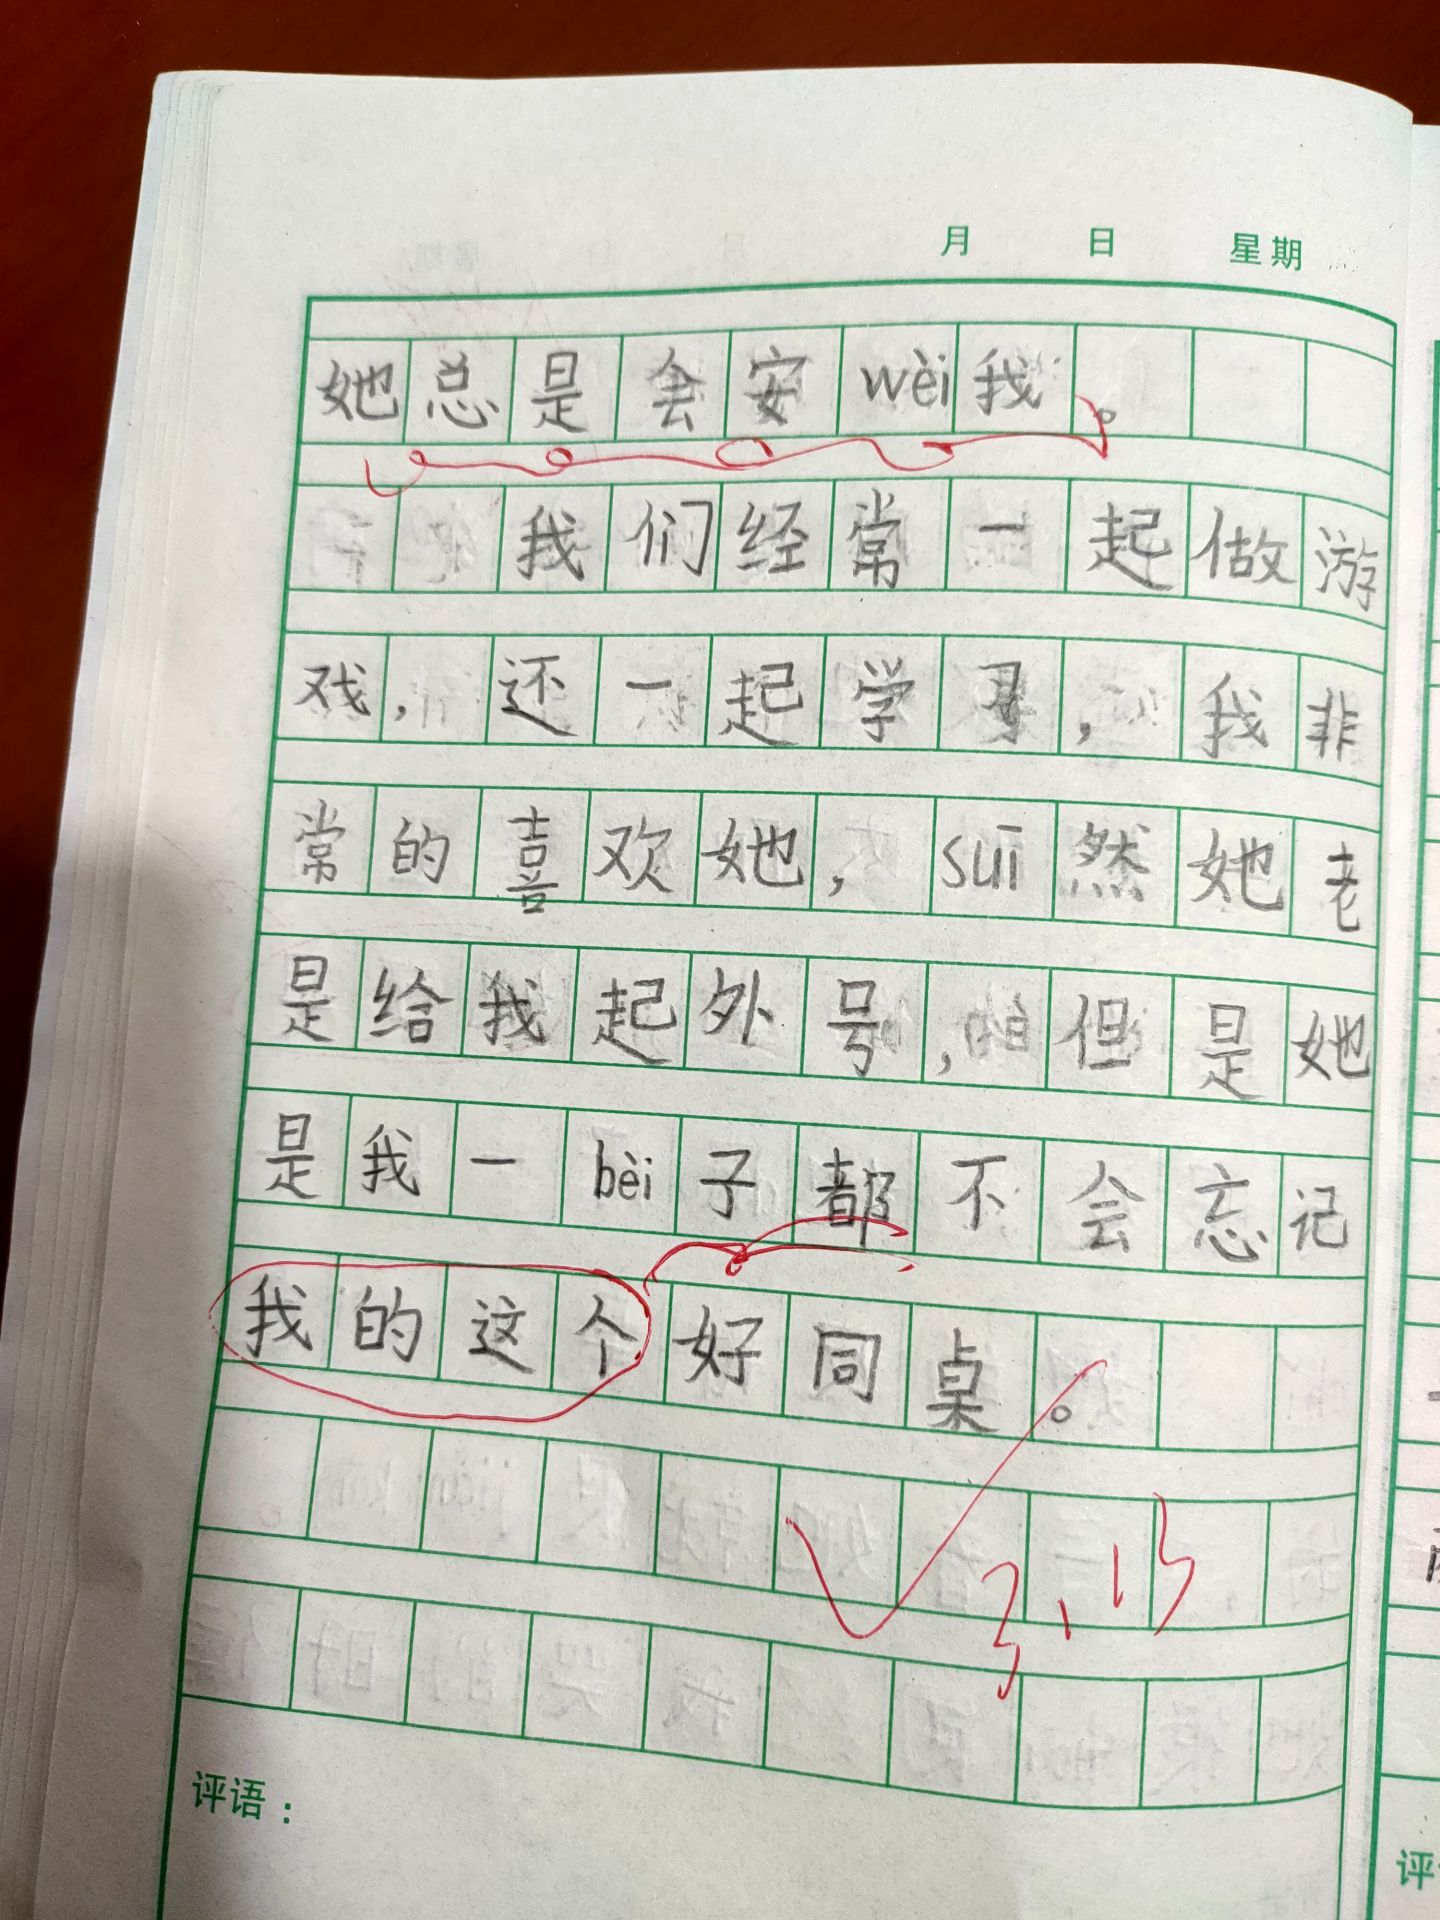 月 日 星期
她总是会安wèi我。
我们经常一起做游
戏，还一起学习，我非
常的喜欢她，suī然她老
是给我起外号，但是她
是我一bèi子都不会忘记
我的这个好同桌。
3.13
评语：